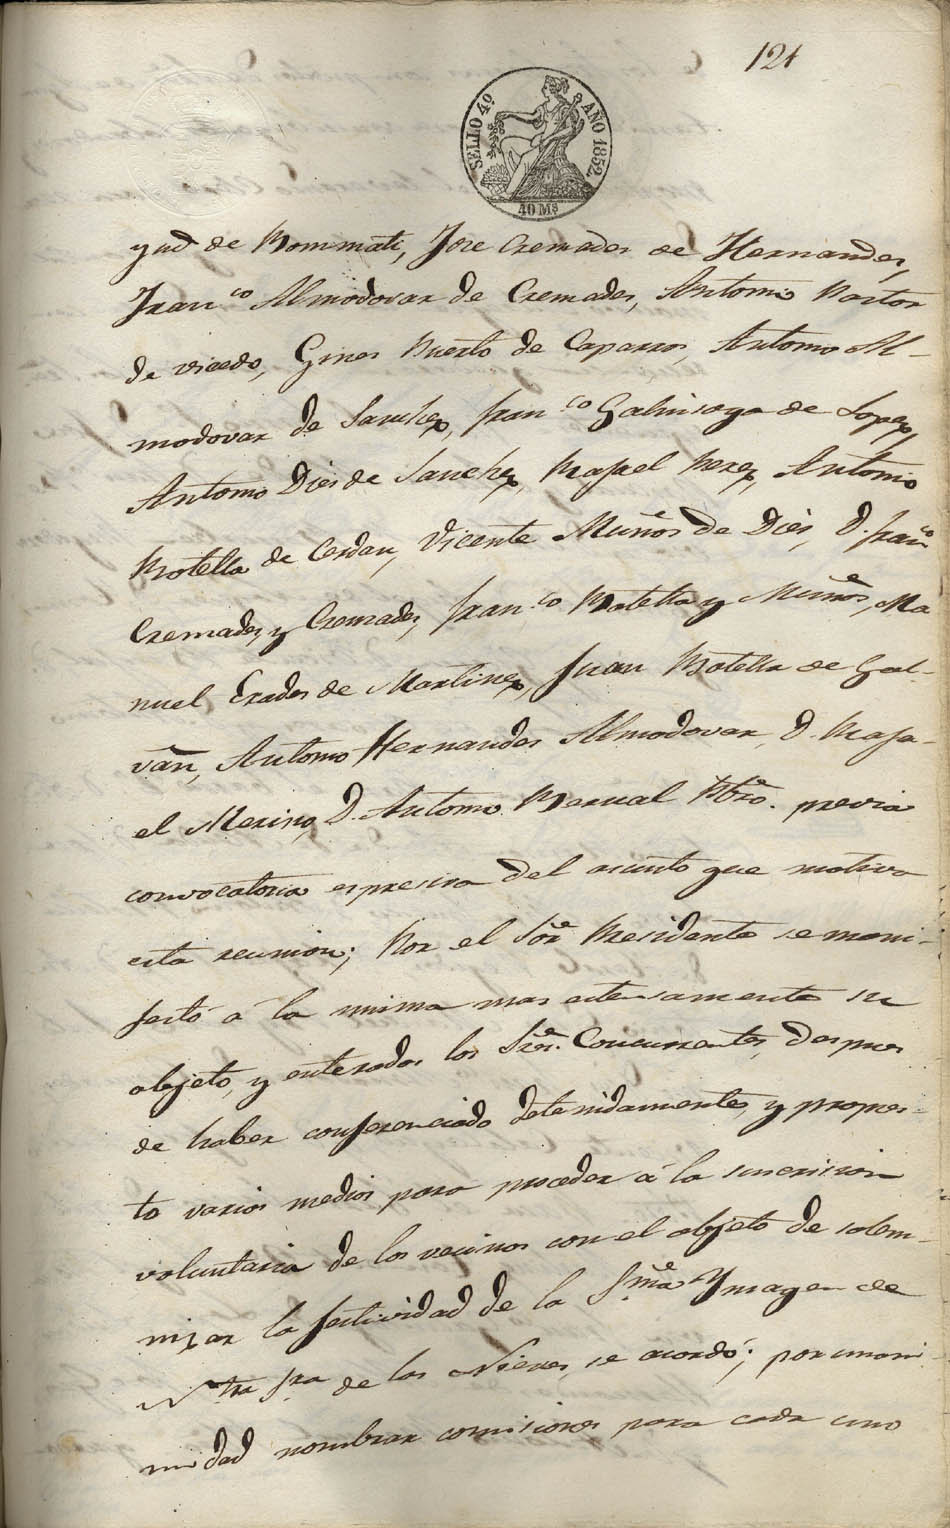 121
SELLO 4º AÑO 1852.
40 Ms
de Bommati, Jose Cremades de Hernandes,
Franco Almodovar de Cremades, Antonio Pastor
de vicedo, Gines Puerto de Caparros, Antonio Al-
modovar de Sanchez, franco Galinsoga de Lopez,
Antonio Dies de Sanchez, Rafael Perez, Antonio
Botella de Cerdan, Vicente Muños de Dies, D. franco
Cremades y Cremades, franco Botella y Muños, Ma
nuel Erades de Martinez, Juan Botella de Gal-
vañ, Antonio Hernandes Almodovar, D. Rafa-
el Merino, D. Antonio Bernal Pbro. previa
convocatoria espresiva del asunto que motiva
esta reunion; Por el Sor Presidente se mani-
festó á la misma mas estensamente su
objeto, y enterados los Sres. Concurrentes, despues
de haber conferenciado detenidamente, y propues-
to varios medios para proceder á la suscricion
voluntaria de los vecinos con el objeto de solem-
nizar la festividad de la Sma Ymagen de
Ntra Sra de las Nieves, se acordó; por unani-
midad nombrar comisiones para cada uno